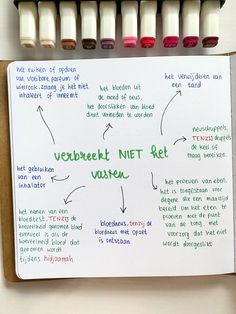 het ruiken of opdoen
van vloeibare parfum of
wierook, zolang je het niet
inhaleert of inneemt
het verwijderen van
een tand
het bloeden uit
de mond of neus,
het doorslikken van bloed
dient vermeden te worden
neusdruppels,
TENZIJ druppels
de keel of
maag bereiken.
verbreekt NIET het
vasten
het gebruiken
van een
inhalator
het proeven van eten,
het is toegestaan voor
degene die een maaltijd
bereid om het eten te
proeven met de punt
van de tong, met
voorzorg dat het niet
wordt doorgeslikt
het nemen van een
bloedtest, TENZIJ de
hoeveelheid genomen bloed
evenveel is als de
hoeveelheid bloed dat
genomen wordt
tijdens hidjaamah
bloedneus, tenzij de
bloedneus met opzet
is ontstaan